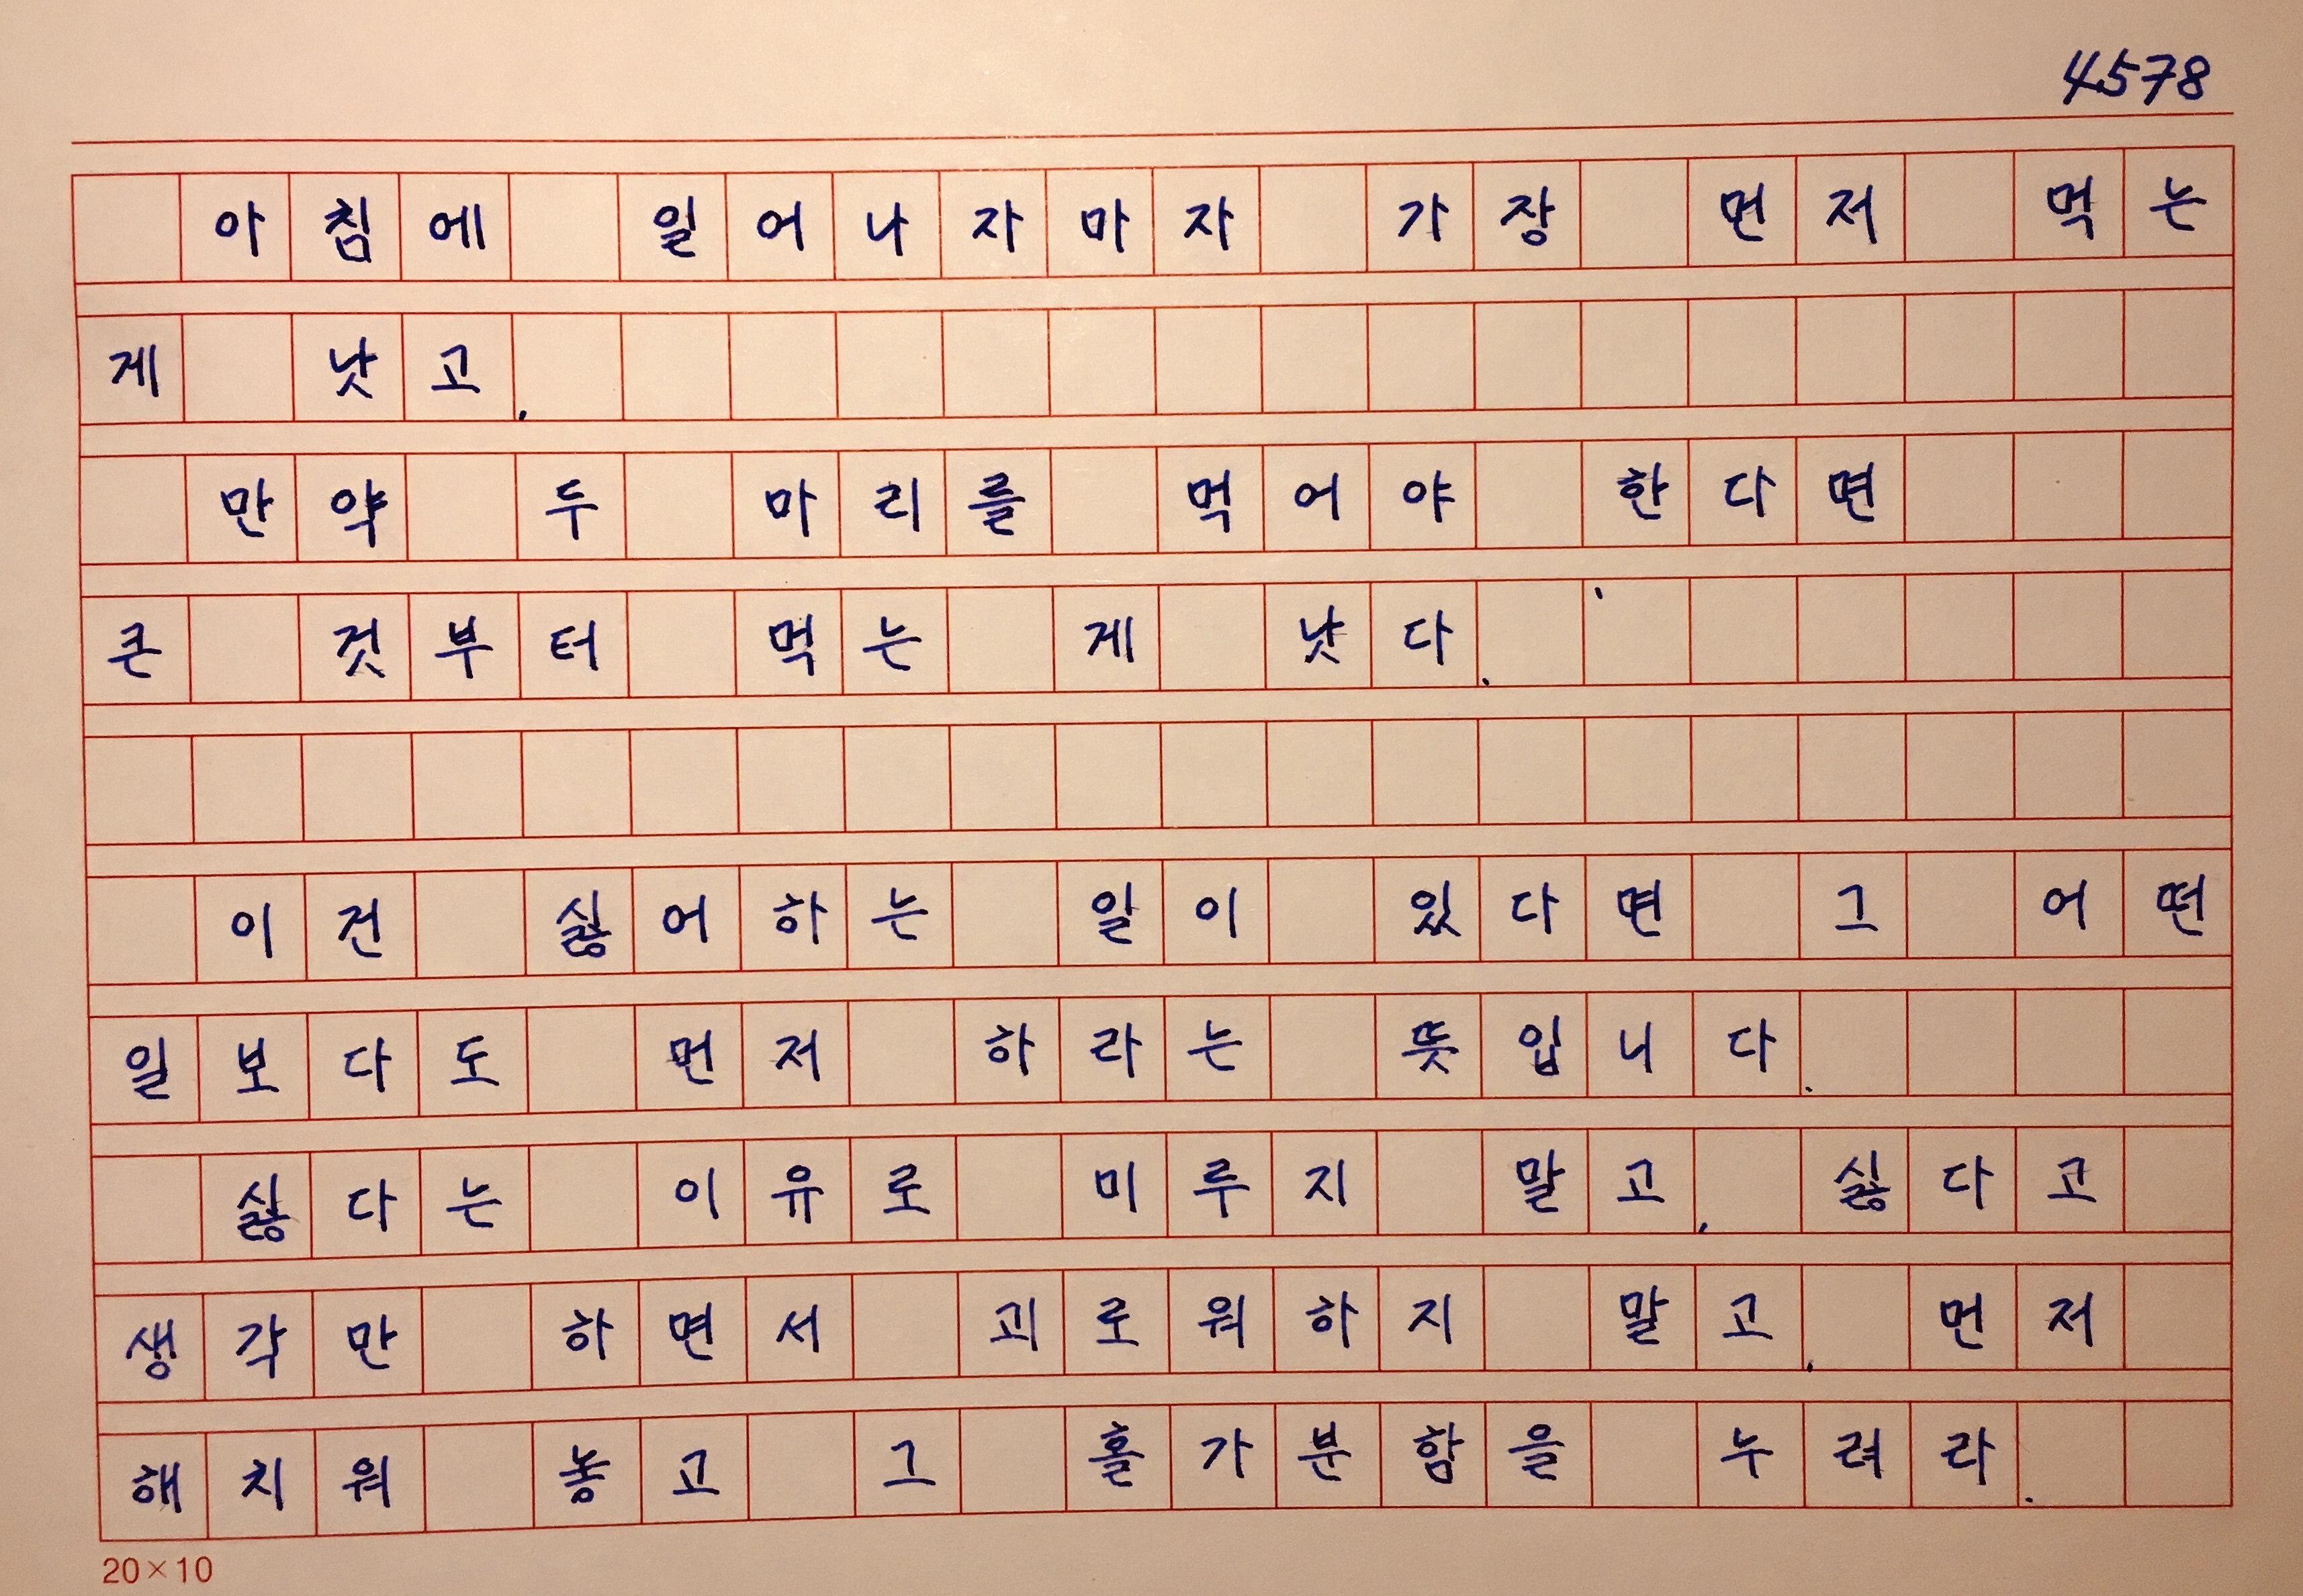 4578
아침에 일어나자마자 가장 먼저 먹는
게 낫고,
만약 두 마리를 먹어야 한다면
큰 것부터 먹는 게 낫다.
이건 싫어하는 일이 있다면 그 어떤
일보다도 먼저 하라는 뜻입니다.
싫다는 이유로 미루지 말고, 싫다고
생각만 하면서 괴로워하지 말고, 먼저
해치워 놓고 그 홀가분함을 누려라.
20×10